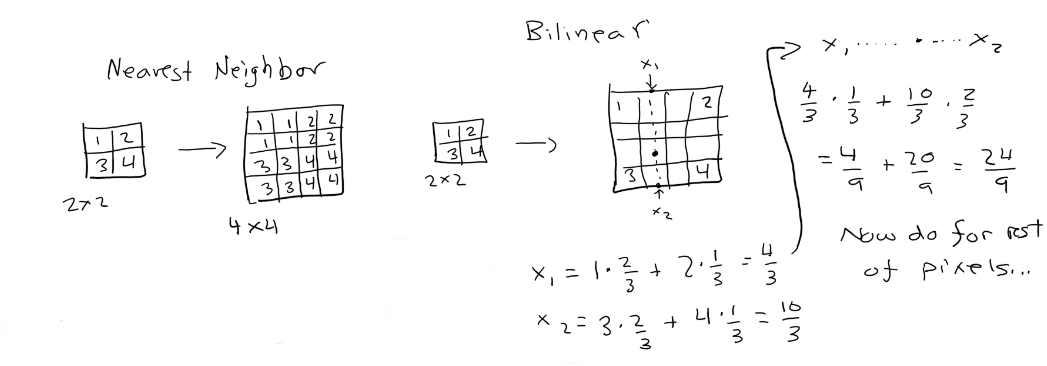 Nearest Neighbor
1 2
3 4
2x2
1 1 2 2
1 1 2 2
3 3 4 4
3 3 4 4
4x4
Bilinear
1 2
3 4
2x2
x₁
1 2
3 4
x₂
x₁ = 1 · 2/3 + 2 · 1/3 = 4/3
x₂ = 3 · 2/3 + 4 · 1/3 = 10/3
x₁ ..... • .... x₂
4/3 · 1/3 + 10/3 · 2/3
= 4/9 + 20/9 = 24/9
Now do for rest
of pixels...